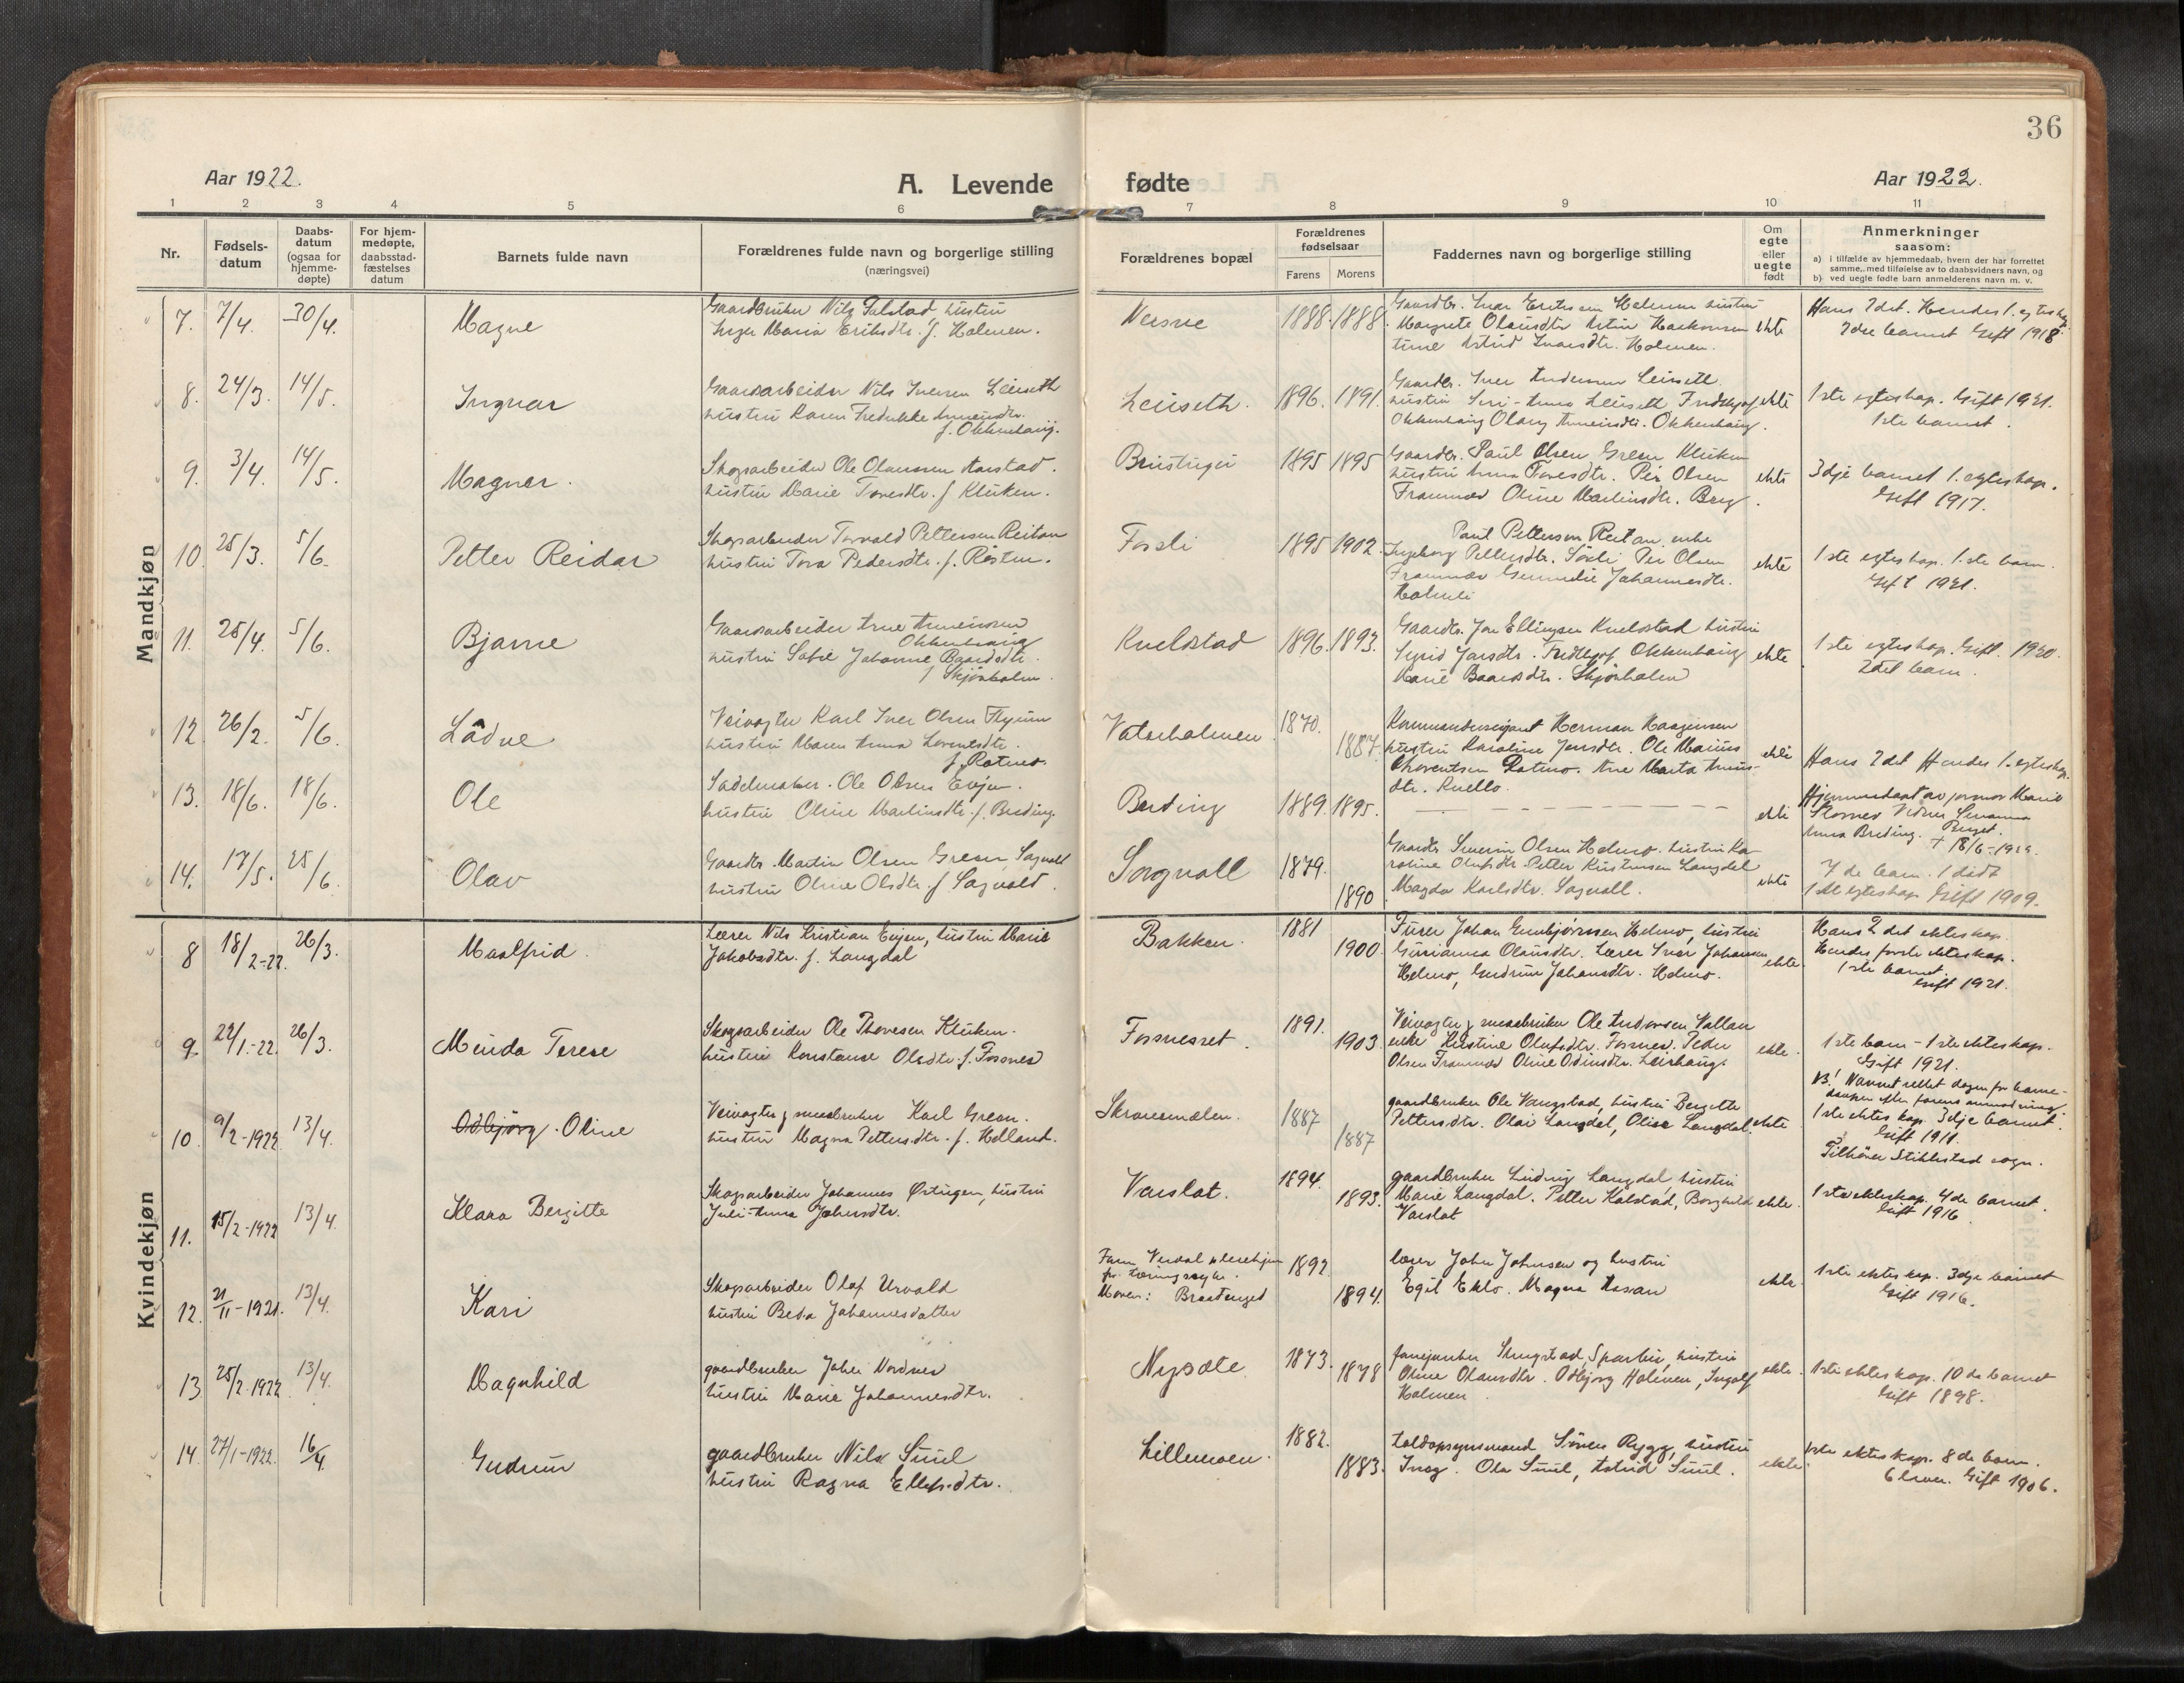 36
Aar 1922.
A. Levende fødte
Aar 1922.
1 2 3 4 5 6 7 8 9 10 11
Nr.
Fødsels-
datum
Daabs-
datum
(ogsaa for
hjemme-
døpte)
For hjem-
medøpte,
daabsstad-
fæstelses
datum
Barnets fulde navn
Forældrenes fulde navn og borgerlige stilling
(næringsvei)
Forældrenes bopæl
Forældrenes
fødselsaar
Farens Morens
Faddernes navn og borgerlige stilling
Om
egte
eller
uegte
født
Anmerkninger
saasom:
a) i tilfælde av hjemmedaab, hvem der har forrettet
samme, med tilføielse av to daabsvidners navn, og
b) ved uegte fødte barn anmelderens navn m. v.
Mandkjøn
7. 7/4. 30/4. Magne
Gaardbruker Nils hustru
Inger Maria Eriksdtr. f. Holmen.
1888. 1888.
Margrete Olausdtr
Astrid Ivarsdtr. Holmen.
ekte
Hans 2det. Hendes 1. egteskap
2det barnet Gift 1918.
8. 24/3. 14/5. Ingvar
Gaardsarbeider Nils Iversen Leirseth
hustru Karen Fredrikke
f. Okkenhaug.
Leirseth. 1896. 1891.
Gaardbr. Iver Andersen Leirseth
hustru Leirseth
Okkenhaug Okkenhaug.
ekte
1ste egteskap. Gift 1921.
1ste barnet.
9. 3/4. 14/5. Magnar.
Skogsarbeider Ole Olaussen Aarstad.
hustru Marie Toresdtr. f. Kluken.
1895 1895
Gaardbr. Paul Olsen Green Kluken
hustru Anna Toresdtr. Per Olsen
Framnæs Oline Martinsdtr. Berg
ekte
3dje barnet 1. egteskap.
Gift 1917.
10. 25/3. 5/6. Petter Reidar
Skogsarbeider Torvald Pettersen Reitan
hustru Tora Pedersdtr. f. Rösten.
Fossli 1895 1902.
Paul Pettersen Reitan, enke
Ingeborg Pettersdtr. Per Olsen
Framnæs Johannesdtr.
Holmli
ekte
1ste egteskap. 1ste barn.
Gift 1921.
11. 25/4. 5/6. Bjarne
Gaardsarbeider Arne
Okkenhaug
hustru Sofie Johanne Baardsdtr.
f. Skjörholm.
Knelstad 1896. 1893.
Gaardbr. Jon Ellingsen Knelstad hustru
Sigrid Jonsdtr. Okkenhaug
Marie Baardsdtr. Skjörholm
ekte
1ste egteskap. Gift. 1920.
2det barn.
12 26/2. 5/6. Lådve
Veivogter Karl Iver Olsen
hustru Maren Anna
f. Rotmo.
Vaterholmen 1870. 1887.
Kommandersergeant Herman Haagensen
hustru Karoline Jensdtr. Ole Marius
Rotmo. Ane Marta
dtr. Kvello.
ekte
Hans 2det Hendes 1. egteskap.
13. 18/6. 18/6. Ole
Sadelmaker. Ole Olsen Evjen.
hustru Oline Martinsdtr. f. Breding.
Breding 1889. 1895.
ekte
Hjemmedøpt av jormor Marie
Anna Breding.
† 18/6-1922.
14. 17/5. 25/6. Olav
Gaardbr. Martin Olsen Green, Sagvold
hustru Oline Olsdtr. f. Sagvold.
Sagvoll 1879. 1890
Gaardbr. Olsen Helmo. hustru Ka-
roline Olufsdtr. Petter Kristensen Langdal
Magda Karlsdtr. Sagvoll.
ekte
7de barn. 1 dødt
1ste egteskap Gift 1909.
Kvindekjøn
8 18/2-22. 26/3. Maalfrid.
Lærer Nils Kristian Evjen, hustru Marie
Jakobsdtr. f. Langdal
Bakken. 1881 1900.
Johan Helmo, hustru
Olausdtr. Lærer Ivar Johansen
Helmo, Gudrun Johansdtr. Helmo.
ekte.
Hans 2det ekteskap.
Hendes første ekteskap.
1ste barnet.
Gift 1921.
9. 22/1.-22. 26/3. Minda Terese
Skogsarbeider Ole Thoresen Kluken.
hustru Konstanse Olsdtr. f. Fosnes
Fosnesset. 1891. 1903.
Veivogter & smaabruker Ole Andersen Vollan
enke Kirstine Olufsdtr. Fosnes. Peder
Olsen Framnæs Oline Odinsdtr. Leirhaug.
ekte.
1ste barn - 1ste ekteskap.
Gift 1921.
10. 9/2-1922 13/4. Odbjörg. Oline
Veivogter & smaabruker Karl Green.
hustru Magna Pettersdtr. f. Holland.
1887 1887
gaardbruker Ole Vangstad, hustru Bergitte
Pettersdtr. Olai Langdal, Olise Langdal.
ekte
NB! Navnet rettet dagen før barne-
daapen efter farens anmodning
1ste ekteskap. 3dje barnet.
Gift 1911.
Tilhører Stiklestad sogn.
11. 15/2-1922 13/4. Klara Bergitte
Skogsarbeider Johannes Østugen, hustru
Juli-Anna Johnsdtr.
Varslot. 1894. 1893.
gaardbruker Ludvig Langdal hustru
Marie Langdal. Petter Kolstad, Borghild
Varslot
ekte.
1ste ekteskap. 4de barnet.
Gift 1916
12. 21/11-1921. 13/4. Kari
Skogsarbeider Olaf Urvold
hustru Beda Johannesdatter
Faren Verdal pleiehjem
for tæringssyke.
Moren: Braatenget
1892 1894.
lærer John Johnsen og hustru
Egil Eklo. Magna Aasan
ekte.
1ste ekteskap. 3dje barnet
Gift 1916.
13 25/2.1922. 13/4. Magnhild
gaardbruker Johan Nordnes
hustru Marie Johannesdtr.
1873. 1878
fanejunker Skrugstad, Sparbu, hustru
Oline Olausdtr. Odbjørg Holmen, Ingolf
Holmen.
ekte.
1ste ekteskap. 10de barnet
Gift 1898.
14. 27/1-1922. 16/4. Gudrun
gaardbruker Nils Suul
hustru Ragna Ellefsdtr.
Lillemoen. 1882. 1883.
toldopsynsmand Sören Rygg, hustru
Inag. Ola Suul, Astrid Suul.
ekte.
1ste ekteskap. 8de barn.
6 lever. Gift 1906.